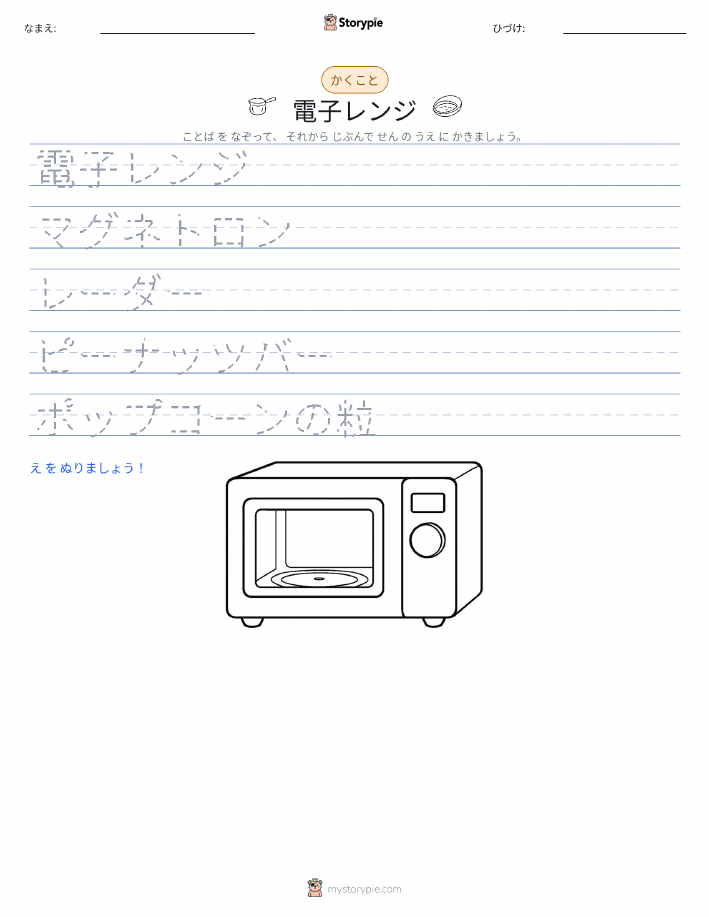 なまえ:
Storypie
ひづけ:
かくこと
電子レンジ
ことば を なぞって、 それから じぶんで せん の うえ に かきましょう。
電子レンジ
マグネトロン
レーダー
ピーナッツバー
ポップコーンの粒
え を ぬりましょう！
mystorypie.com